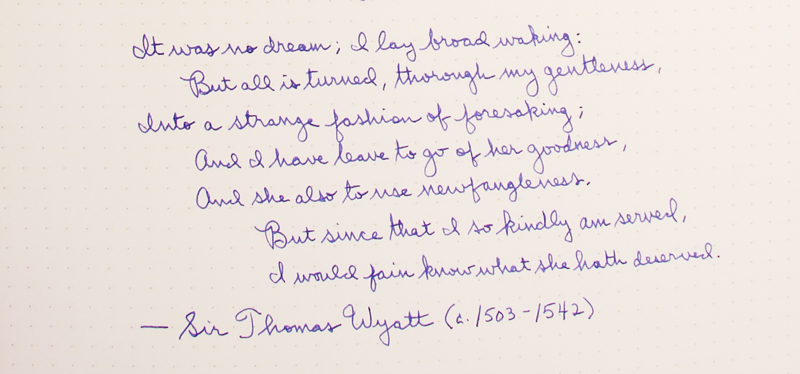 It was no dream; I lay broad waking:
But all is turned, thorough my gentleness,
Into a strange fashion of foresaking;
And I have leave to go of her goodness,
And she also to use newfangleness.
But since that I so kindly am served,
I would fain know what she hath deserved.
— Sir Thomas Wyatt (c. 1503-1542)